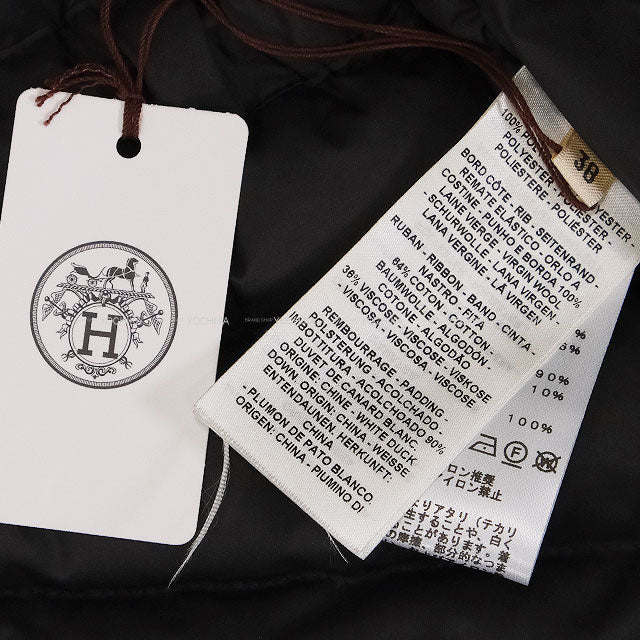 H
YOCHIKA BRAND SHOP
38
100%
POLIESTERE - POLIESTER
BORD CÔTE - RIB - SEITENRAND -
REMATE ELÁSTICO - ORLO A
COSTINE - PUNHO E BORDA 100%
LAINE VIERGE - VIRGIN WOOL
- SCHURWOLLE - LANA VIRGEN -
LANA VERGINE - LÃ VIRGEN
RUBAN - RIBBON - BAND - CINTA -
NASTRO - FITA
64% COTON - COTTON -
BAUMWOLLE - ALGODÓN -
COTONE - ALGODÃO
36% VISCOSE - VISCOSE - VISKOSE
- VISCOSA - VISCOSA - VISCOSE
REMBOURRAGE - PADDING -
POLSTERUNG - ACOLCHADO -
IMBOTTITURA - ACOLCHOADO 90%
DUVET DE CANARD BLANC,
ORIGINE: CHINE - WHITE DUCK
DOWN, ORIGIN: CHINA - WEISSE
ENTENDAUNEN HERKUNFT:
CHINA
- PLUMON DE PATO BLANCO,
ORIGEN: CHINA - PIUMINO DI
%
%
90%
10%
100%
イロン推奨
イロン禁止
アタリ(テカリ